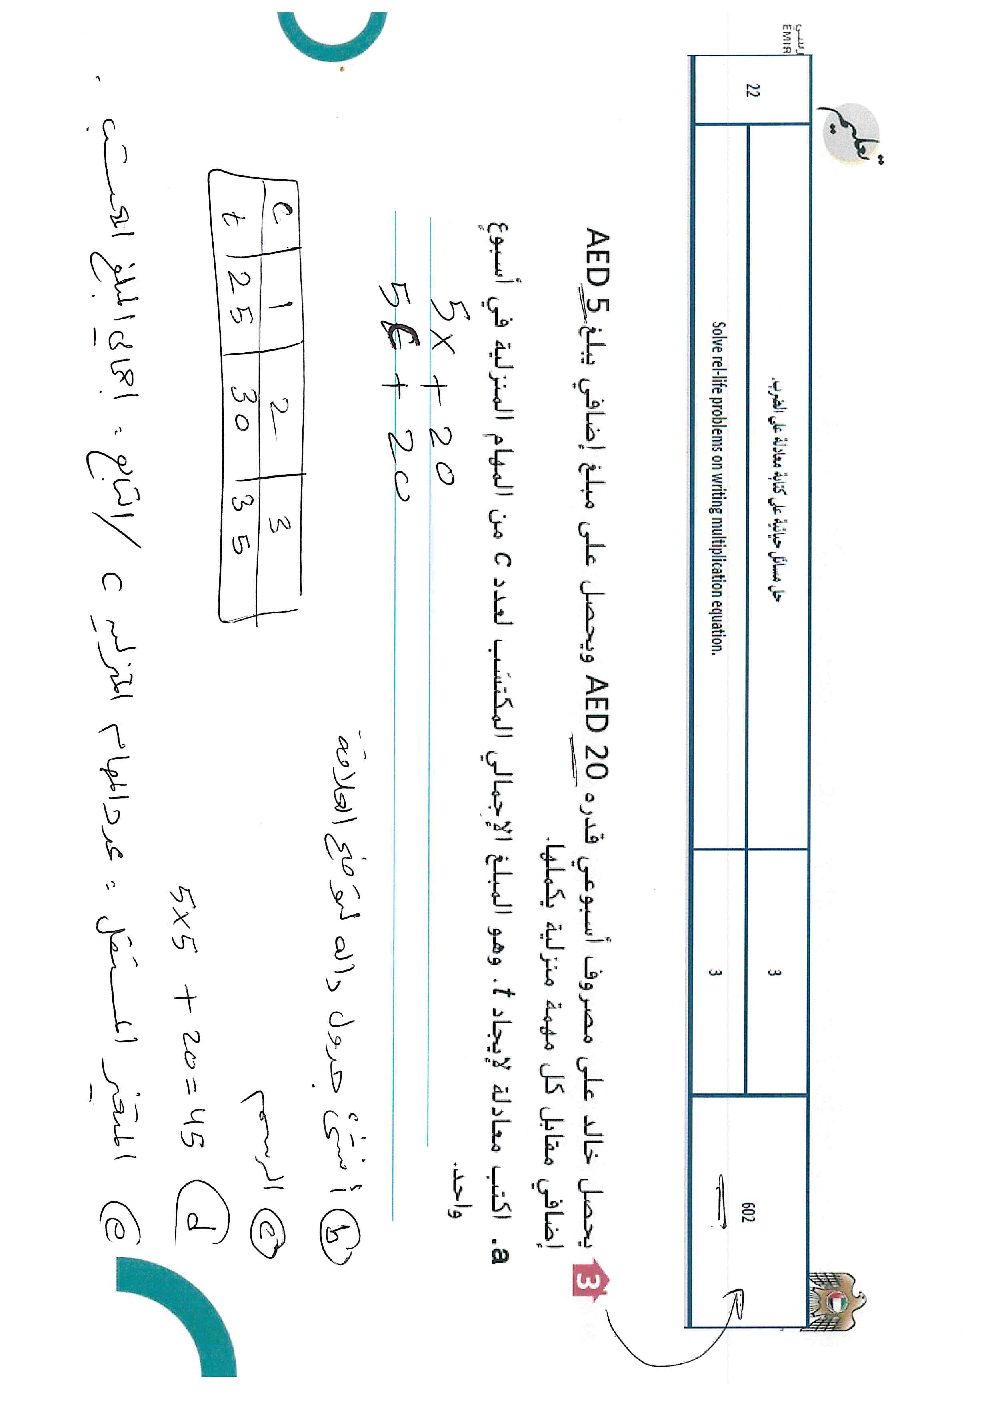 تعليم
EMIR
22
حل مسائل حياتية على كتابة معادلة على الضرب.
Solve rel-life problems on writing multiplication equation.
3
3
602
3 يحصل خالد على مصروف أسبوعي قدره AED 20 ويحصل على مبلغ إضافي يبلغ AED 5
إضافي مقابل كل مهمة منزلية يكملها.
a. اكتب معادلة لإيجاد t، وهو المبلغ الإجمالي المكتسَب لعدد c من المهام المنزلية في أسبوع
واحد.
5x + 20
5c + 20
b أنشئ جدول دالة لتوضح العلاقة
c 1 2 3
t 25 30 35
c الرسم
d 5x5 + 20 = 45
e المتغير المستقل = عدد المهام المنزلية c / التابع = إجمالي المبلغ المكتسب